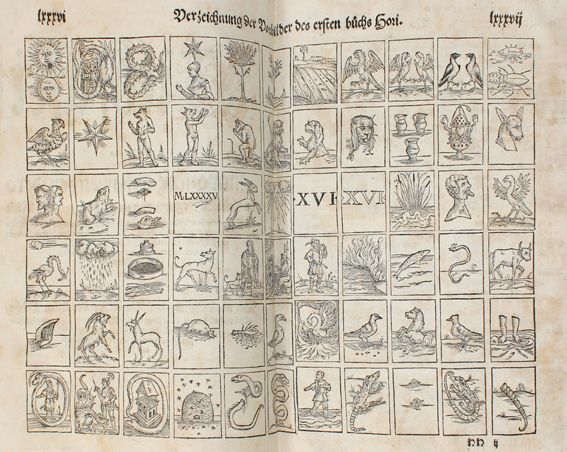 lxxxvi Verzeichnung der Vorbilder des ersten bůchs Hori. lxxxvij
M·LXXXXV
·XVI· XVI·
hh ij